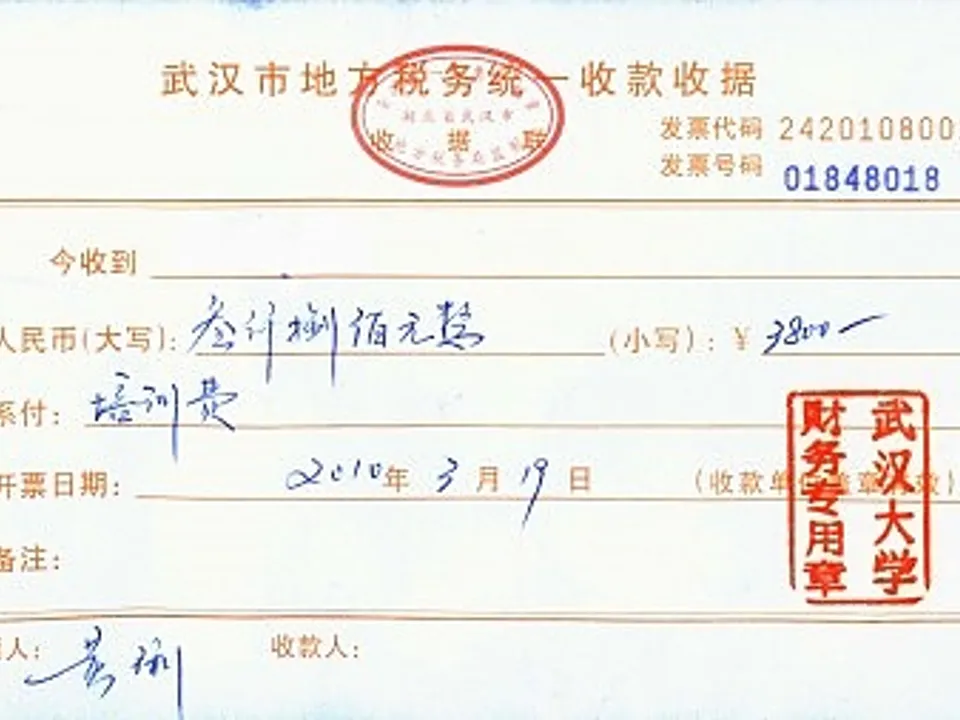 武汉市地方税务统一收款收据
收据联
发票代码 242010800
发票号码 01848018
今收到
人民币(大写): 叁仟捌佰元整 (小写): ¥ 3800
系付: 培训费
开票日期: 2010年 3月 19日 (收款单位盖章有效)
武汉大学
财务专用章
备注:
人: 收款人: